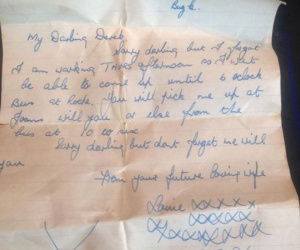 My Darling Derek
Sorry darling but I forgot
I am working THURS afternoon so I wont
be able to come up until 6 oclock
Bus at You will pick me up at
will you or else from the
bus at 10 to six
Sorry darling but dont forget me will
you
From your future loving wife
xxxxx
xxxxx
xxxxxxx